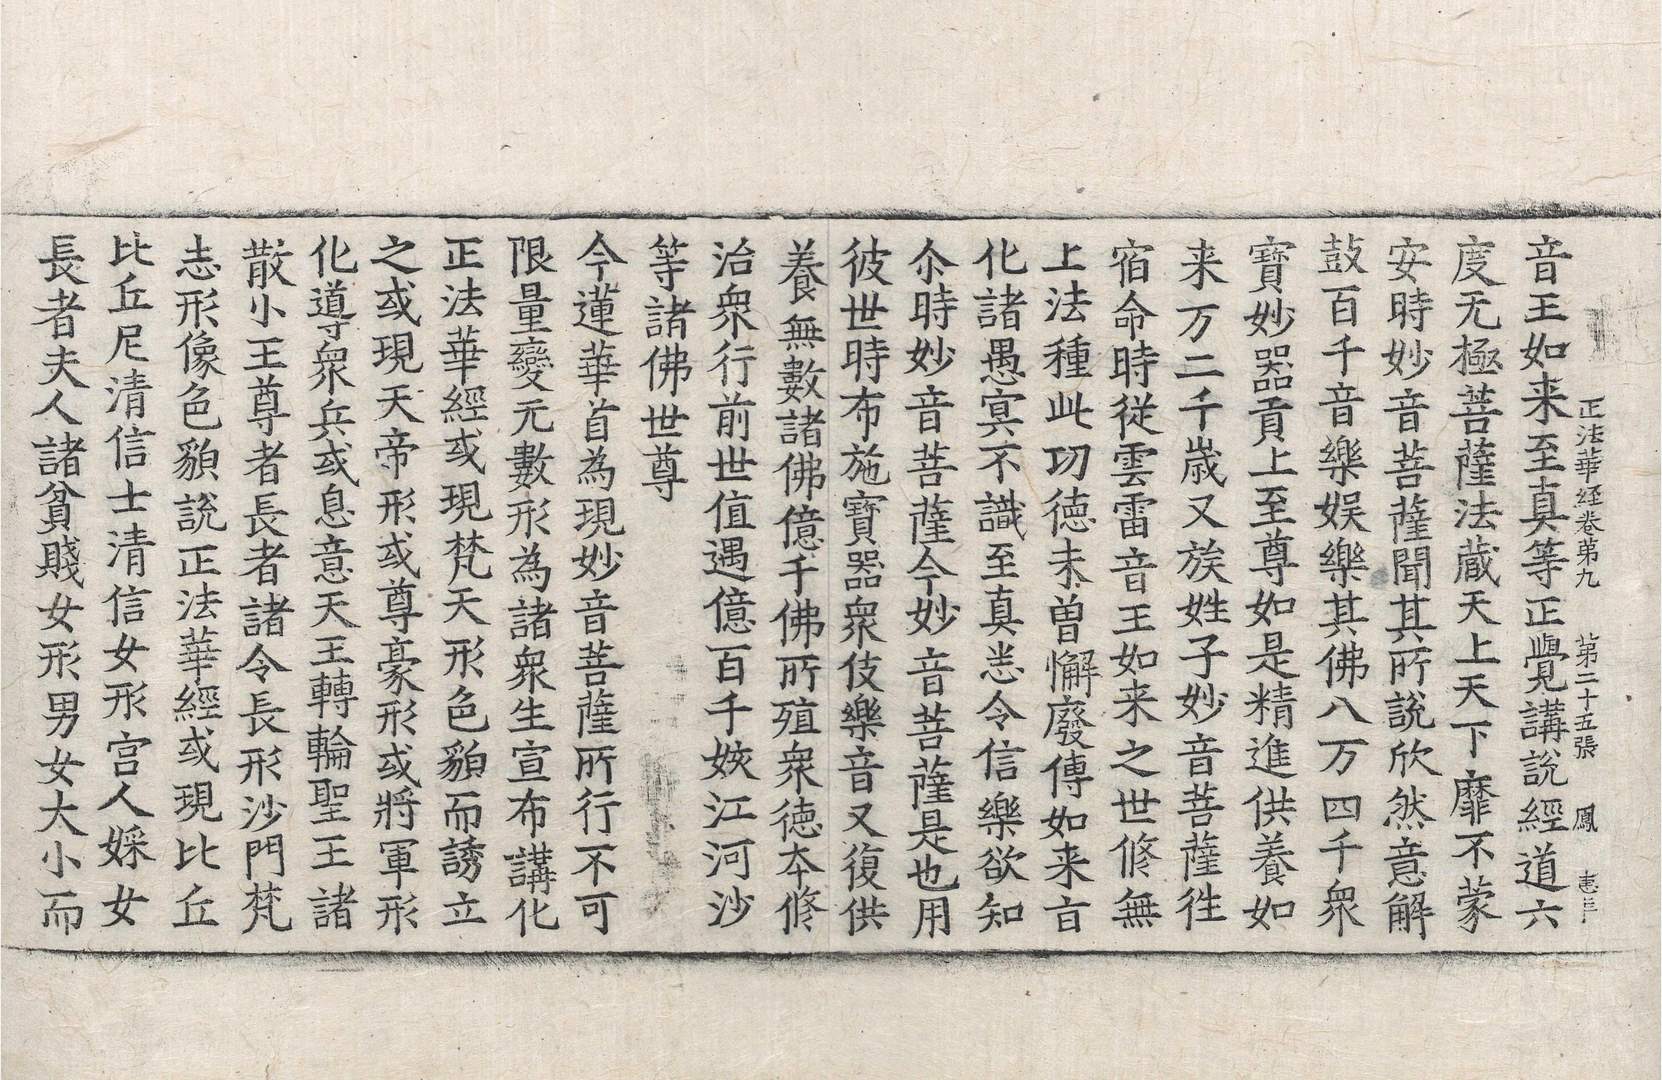 正法華経卷苐九 苐二十五張 鳳
音王如来至真等正覺講說經道六
度无極菩薩法蔵天上天下靡不蒙
安時妙音菩薩聞其所說欣然意解
鼓百千音樂娱樂其佛八万四千衆
寶妙器貢上至尊如是精進供養如
来万二千歲又族姓子妙音菩薩徃
宿命時從雲雷音王如来之世修無
上法種此功徳未曽懈廢傳如来言
化諸愚㝠不識至真悉令信樂欲知
尒時妙音菩薩今妙音菩薩是也用
彼世時布施寶器衆伎樂音又復供
養無數諸佛億千佛所殖衆徳夲修
治衆行前世值遇億百千姟江河沙
等諸佛世尊
今蓮華首為現妙音菩薩所行不可
限量變无數形為諸衆生宣布講化
正法華經或現梵天形色貌而誘立
之或現天帝形或尊豪形或將軍形
化導衆兵或息意天王轉輪聖王諸
散小王尊者長者諸令長形沙門梵
志形像色貌說正法華經或現比丘
比丘尼清信士清信女形宫人婇女
長者夫人諸貧賤女形男女大小而